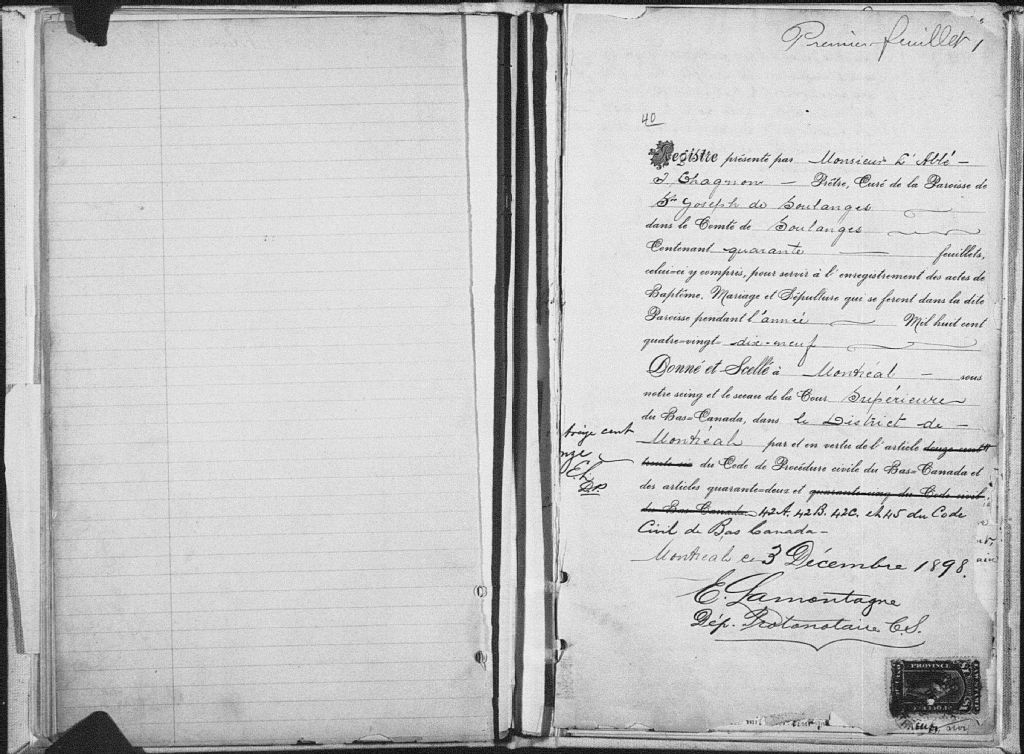 Premier feuillet
40
Registre présenté par Monsieur L'Abbé –
J. Chagnon — Prêtre, Curé de la Paroisse de
St Joseph de Soulanges
dans le Comté de Soulanges
Contenant quarante — feuillets,
celui-ci y compris, pour servir à l'enregistrement des actes de
Baptême, Mariage et Sépulture qui se feront dans la dite
Paroisse pendant l'année — Mil huit cent
quatre-vingt- dix-neuf
Donné et Scellé à Montréal — sous
notre seing et le sceau de la Cour Supérieure
du Bas-Canada, dans le District de –
Montréal par et en vertu de l'article douze cent
trente six du Code de Procédure civile du Bas-Canada et
des articles quarante-deux et quarante-cinq du Code civil
du Bas Canada. 42A. 42B. 42C. et 45 du Code
Civil de Bas Canada –
treize cent
onze
E.L.
D.P.
Montréal ce 3 Décembre 1898.
E. Lamontagne
Dép. Protonotaire C.S.
PROVINCE